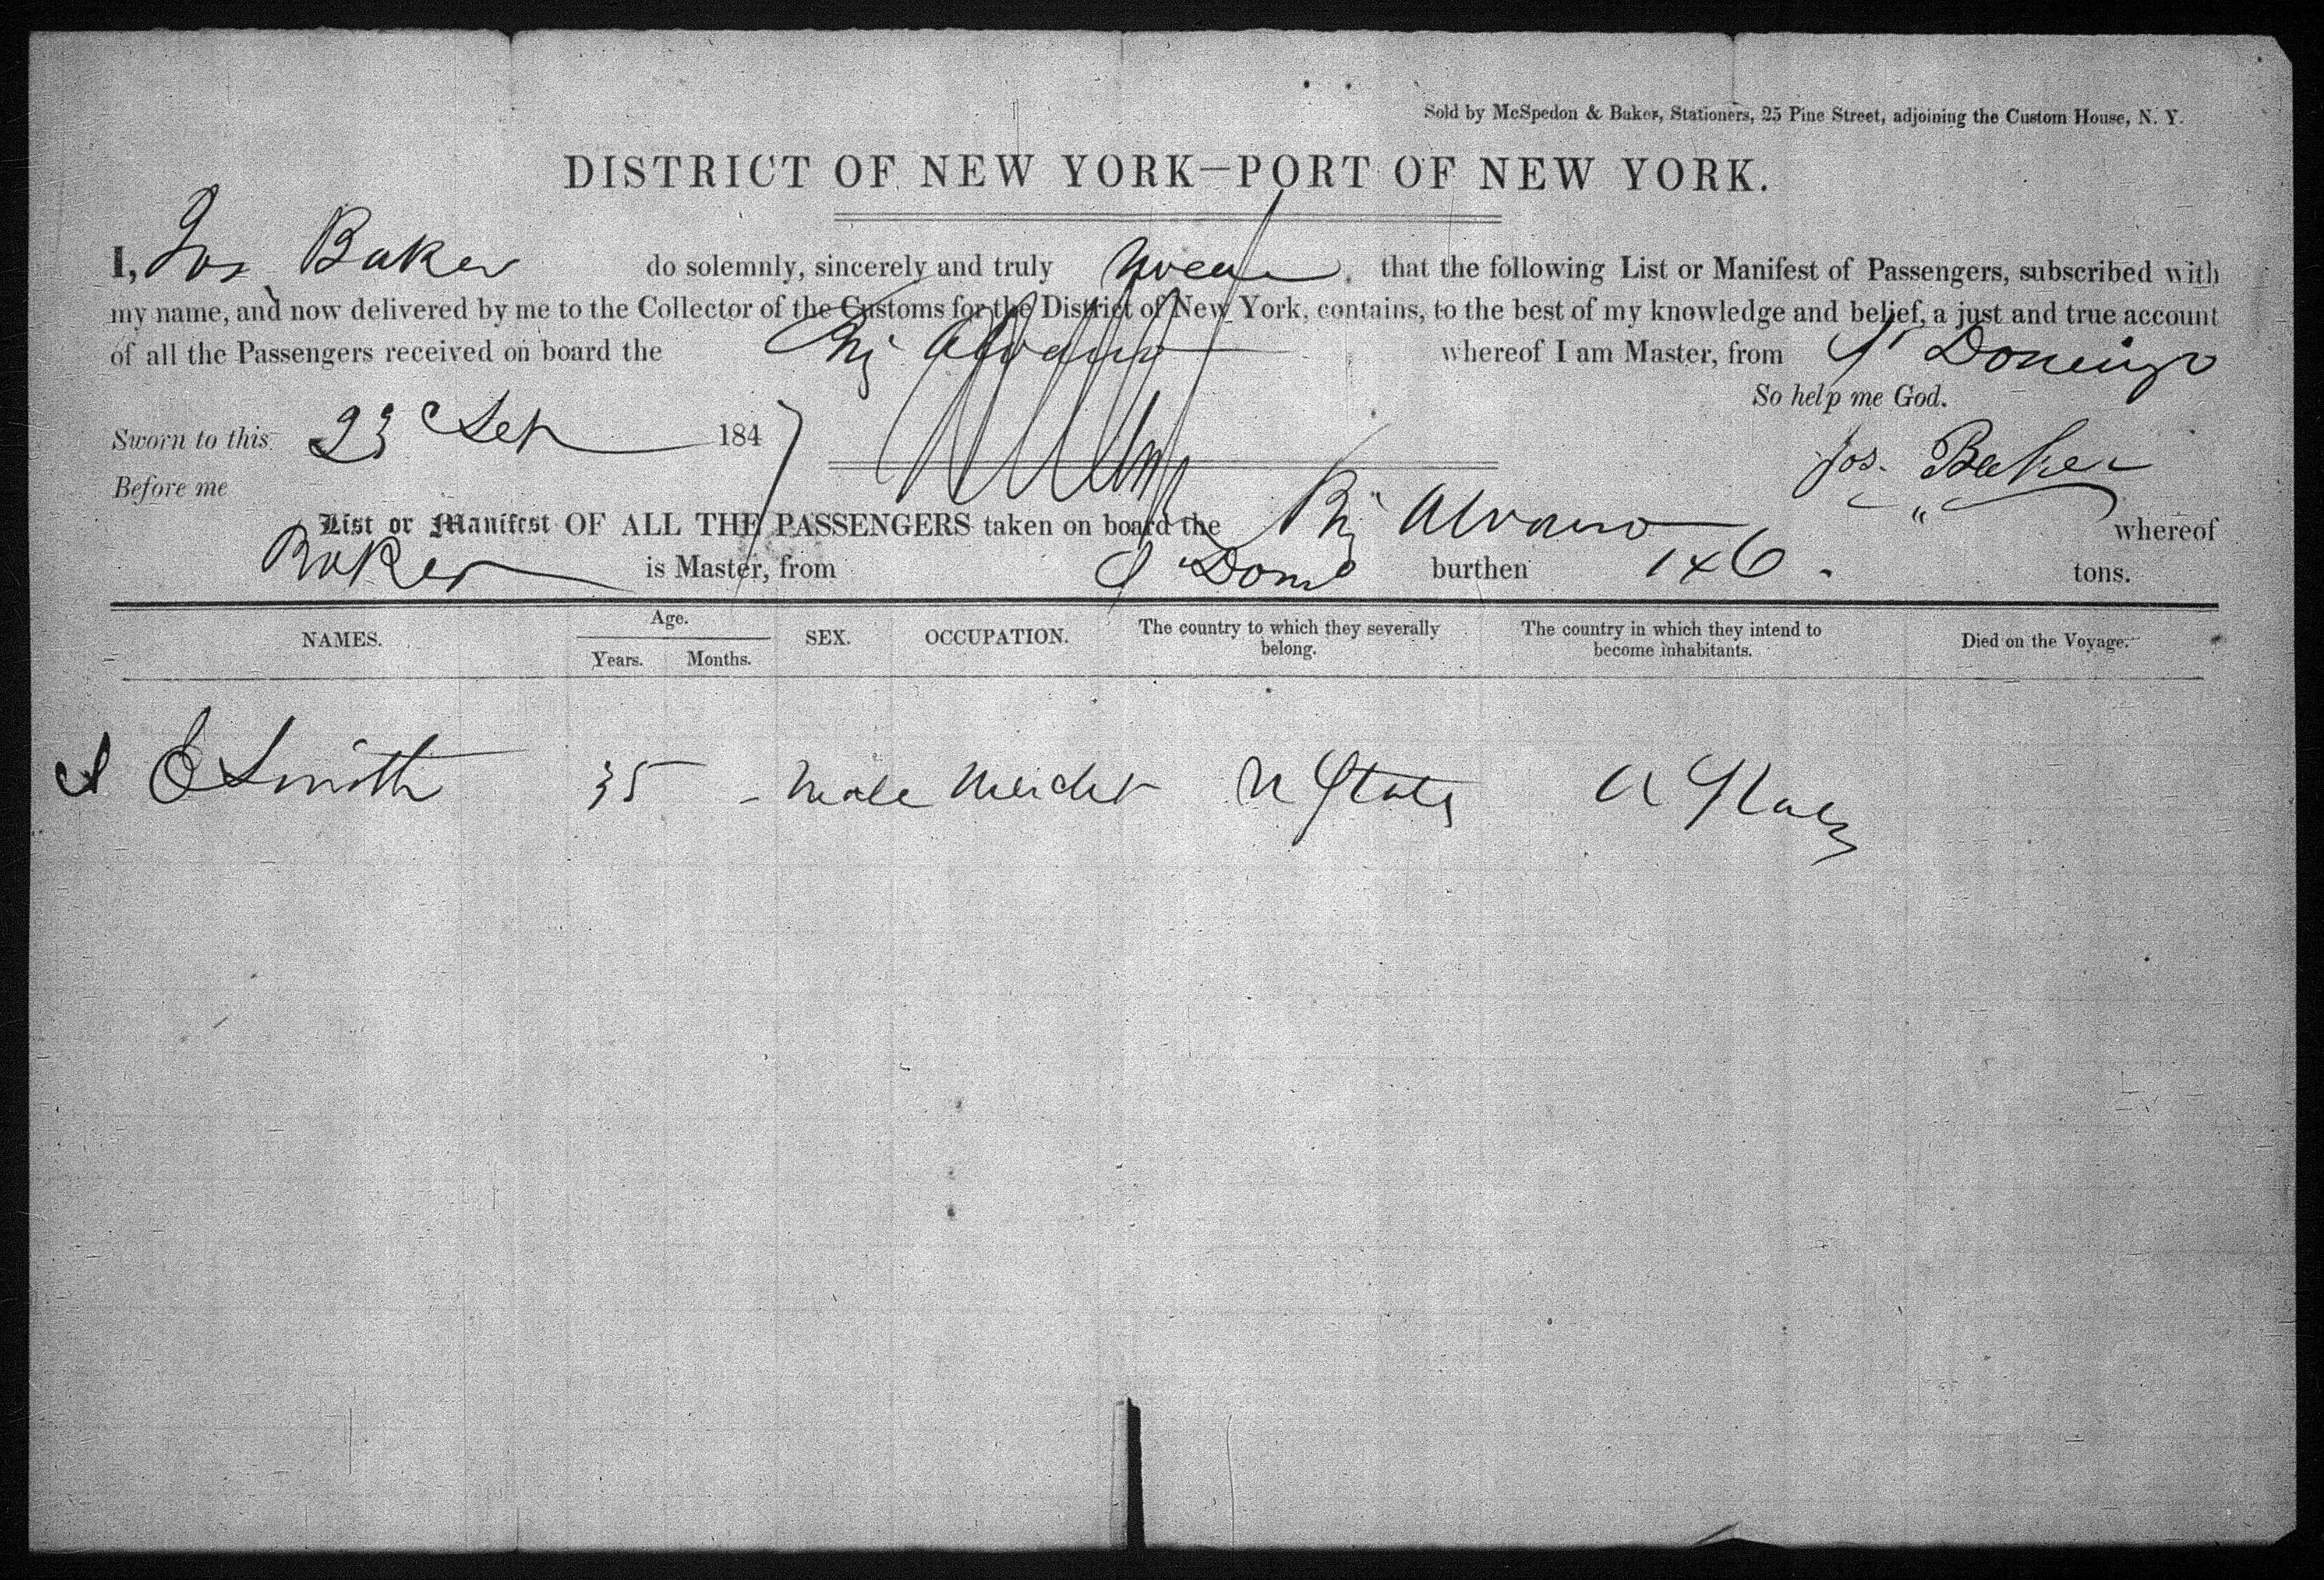 Sold by McSpedon & Baker, Stationers, 25 Pine Street, adjoining the Custom House, N. Y.
DISTRICT OF NEW YORK—PORT OF NEW YORK.
I, Jos Baker do solemnly, sincerely and truly swear that the following List or Manifest of Passengers, subscribed with
my name, and now delivered by me to the Collector of the Customs for the District of New York, contains, to the best of my knowledge and belief, a just and true account
of all the Passengers received on board the Brig Alvaro whereof I am Master, from St Domingo
So help me God.
Sworn to this 23 Sep 1847
Jos. Baker
Before me
List or Manifest OF ALL THE PASSENGERS taken on board the Brig Alvaro whereof
Baker is Master, from St Domo burthen 146 tons.
NAMES. Age. Years. Months. SEX. OCCUPATION. The country to which they severally belong. The country in which they intend to become inhabitants. Died on the Voyage.
E Smith 35 - Male Mercht U States U States